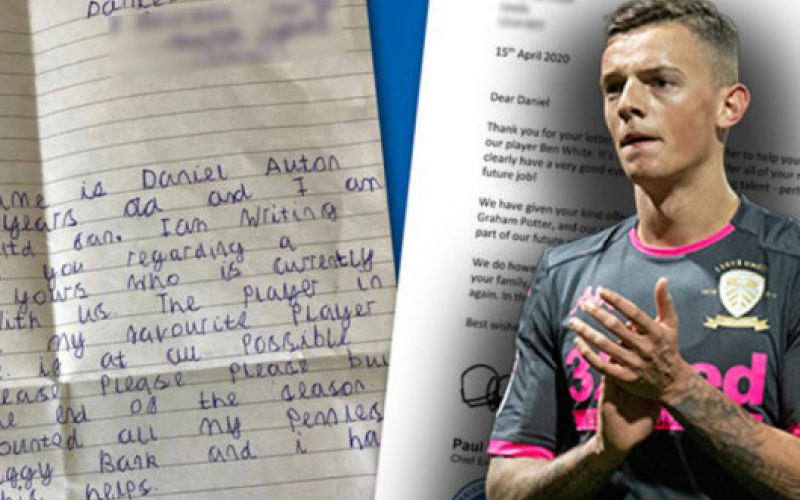 Danie
ame is Daniel Auton
years old and I am
td fan. I am Writing
you regarding a
yours who is currently
ith us The Player in
my favourite Player
is at all Possible
ease Please Please but
he end of the season
ounted all my Pennies
iggy Bank and i ha
his helps.
15th April 2020
Dear Daniel
Thank you for your letter
our player Ben White. It's
fer to help you
clearly have a very good eye
fer all of your
future job!
ng talent - per
We have given your kind offe
Graham Potter, and our
part of our future
We do howe
your family,
again. In th
Best wishe
Paul
Chief Ex
32Red